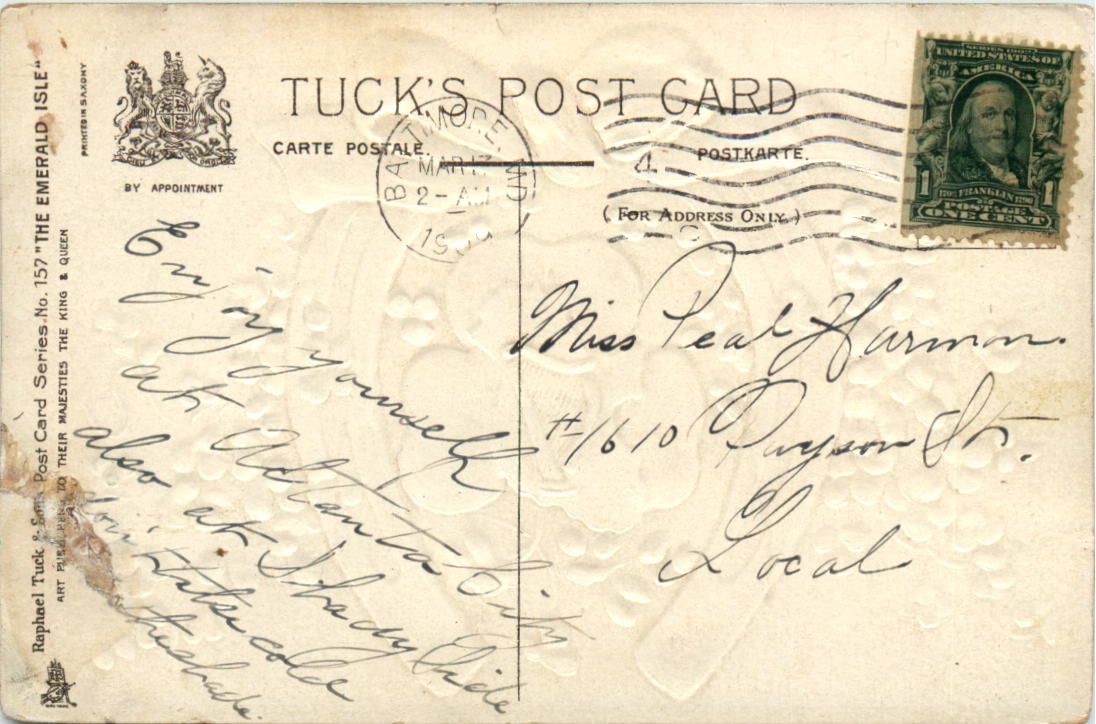 TUCK'S POST CARD
CARTE POSTALE.
POSTKARTE.
(FOR ADDRESS ONLY.)
BY APPOINTMENT
PRINTED IN SAXONY
Raphael Tuck & Sons Post Card Series No. 157 "THE EMERALD ISLE"
ART PUBLISHERS TO THEIR MAJESTIES THE KING & QUEEN
BALTIMORE, MD
MAR
2-AM
4
SERIES 1902
UNITED STATES OF
AMERICA
1 FRANKLIN 1
POSTAGE
ONE CENT
Enjoy yourself
at Adlanta City
also at Shady Side
cold
the shade.
Miss Peal Harmon.
#1610 Payson St.
Local